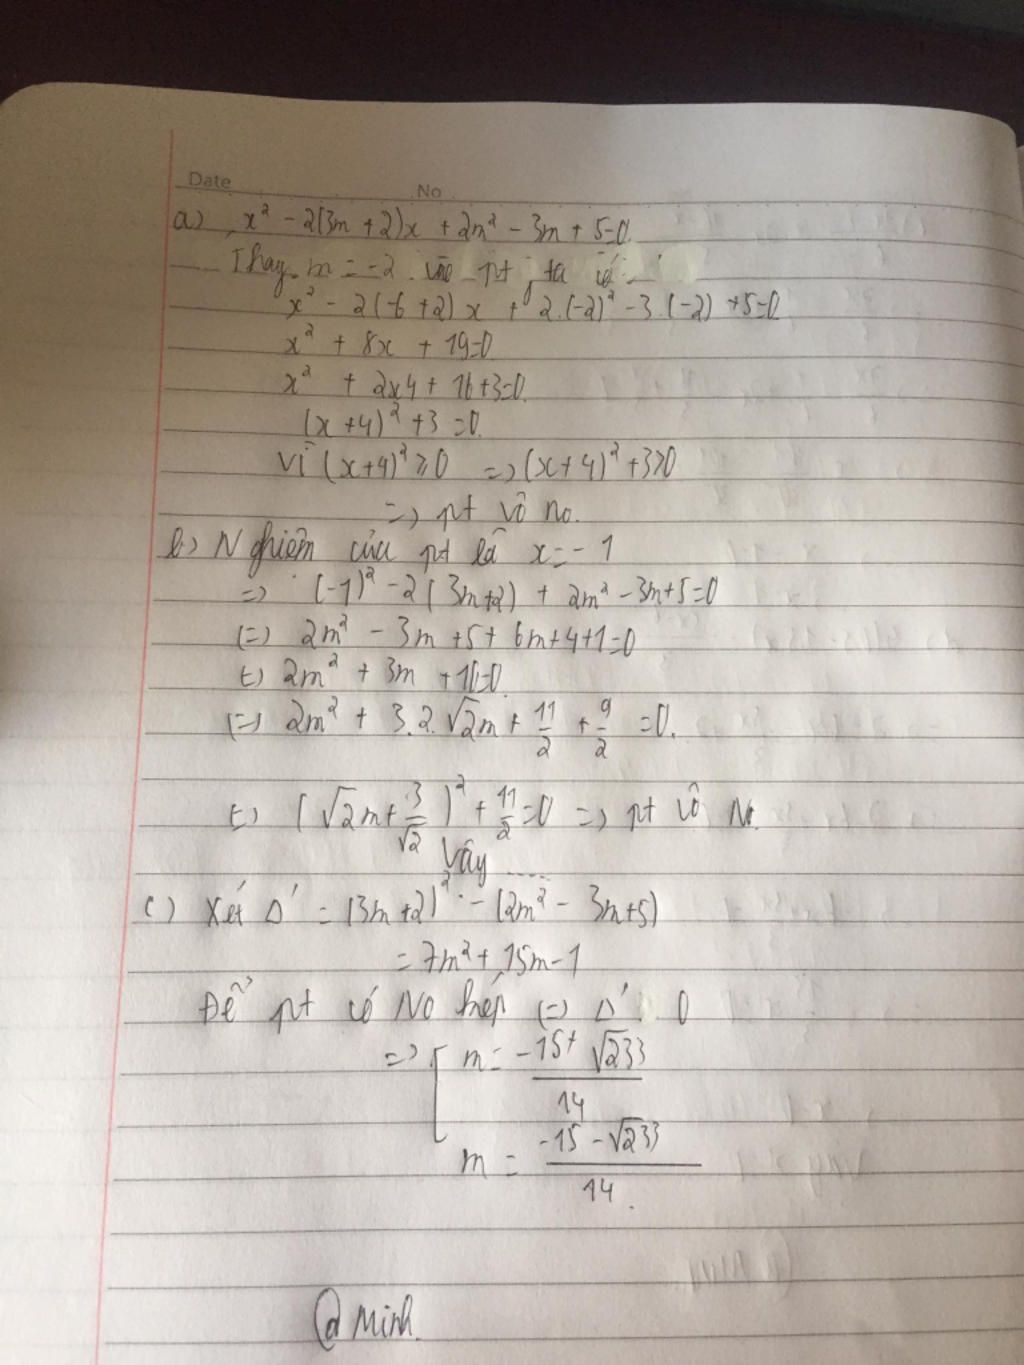 Date
No
a) x² - 2(3m + 2)x + 2m² - 3m + 5=0
Thay m = -2 vào pt, ta có:
x² - 2(-6+2)x + 2.(-2)² - 3.(-2) +5=0
x² + 8x + 19=0
x² + 2x4 + 16+3=0
(x+4)² +3 =0
vì (x+4)² ≥ 0 => (x+4)² +3>0
=> pt vô no.
b) Nghiệm của pt là x=-1
=> (-1)² - 2(3m+2) + 2m² - 3m+5=0
(=) 2m² - 3m +5+ 6m+4+1=0
(=) 2m² + 3m +10=0
(=) 2m² + 3.2.√2m + 11/2 + 9/2 =0.
(=) (√2m + 3/√2)² + 11/2 =0 => pt vô No
Vậy ....
c) Xét Δ' = (3m+2)² - (2m² - 3m+5)
= 7m² + 15m - 1
Để pt có No kép (=) Δ' 0
=> [ m = -15+ √233 / 14
m = -15 - √233 / 14.
@ Minh.